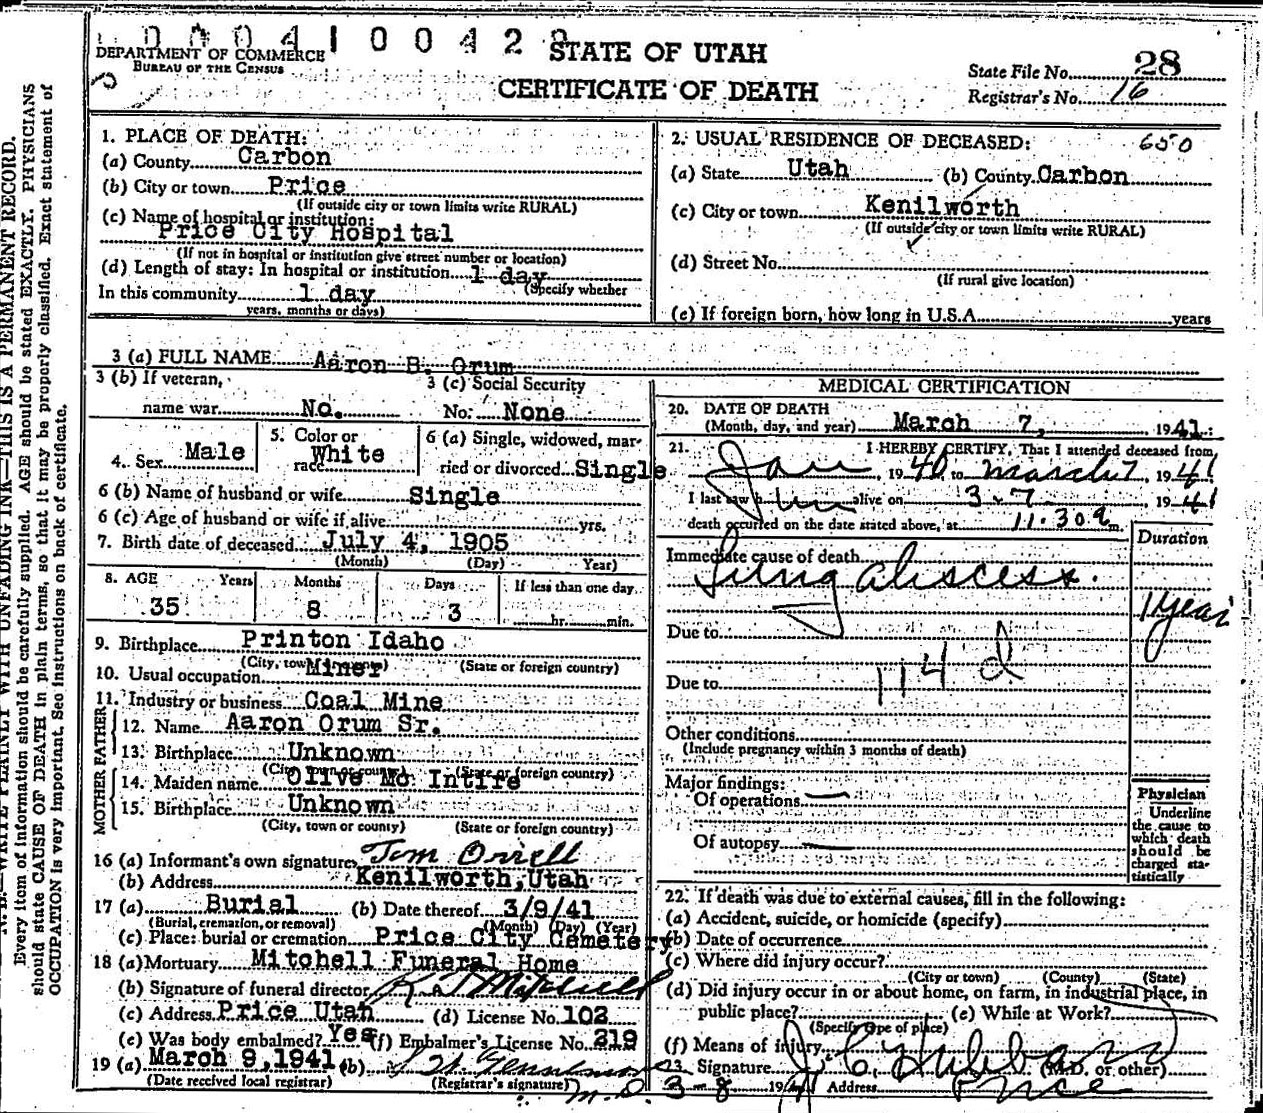 0 0 0 4 1 0 0 4 2 9
DEPARTMENT OF COMMERCE
BUREAU OF THE CENSUS
STATE OF UTAH
CERTIFICATE OF DEATH
State File No. 28
Registrar's No. 16
1. PLACE OF DEATH:
(a) County Carbon
(b) City or town Price
(If outside city or town limits write RURAL)
(c) Name of hospital or institution:
Price City Hospital
(If not in hospital or institution give street number or location)
(d) Length of stay: In hospital or institution 1 day
(Specify whether
In this community 1 day
years, months or days)
2. USUAL RESIDENCE OF DECEASED: 650
(a) State Utah (b) County Carbon
(c) City or town Kenilworth
(If outside city or town limits write RURAL)
(d) Street No.
(If rural give location)
(e) If foreign born, how long in U.S.A. years
3 (a) FULL NAME Aaron B. Orum
3 (b) If veteran, name war No.
3 (c) Social Security No. None
4. Sex Male
5. Color or race White
6 (a) Single, widowed, married or divorced Single
6 (b) Name of husband or wife Single
6 (c) Age of husband or wife if alive yrs.
7. Birth date of deceased July 4, 1905
(Month) (Day) (Year)
8. AGE Years Months Days If less than one day
35 8 3 hr. min.
9. Birthplace Printon Idaho
(City, town or county) (State or foreign country)
10. Usual occupation Miner
11. Industry or business Coal Mine
FATHER
12. Name Aaron Orum Sr.
13. Birthplace Unknown
(City, town or county) (State or foreign country)
MOTHER
14. Maiden name Olive Mc Intire
15. Birthplace Unknown
(City, town or county) (State or foreign country)
16 (a) Informant's own signature Tom Orrell
(b) Address Kenilworth, Utah
17 (a) Burial (b) Date thereof 3/9/41
(Burial, cremation, or removal) (Month) (Day) (Year)
(c) Place: burial or cremation Price City Cemetery
18 (a) Mortuary Mitchell Funeral Home
(b) Signature of funeral director Mitchell
(c) Address Price Utah (d) License No. 102
(e) Was body embalmed? Yes (f) Embalmer's License No. 219
19 (a) March 9, 1941 (b)
(Date received local registrar) (Registrar's signature) M.D.
MEDICAL CERTIFICATION
20. DATE OF DEATH
(Month, day, and year) March 7, 1941
21. I HEREBY CERTIFY, That I attended deceased from
Jan 1940 to March 7, 1941
I last saw him alive on 3-7 1941
death occurred on the date stated above, at 11:30 a m.
Duration
Immediate cause of death
Lung abscess.
1 year
Due to
114 d
Due to
Other conditions
(Include pregnancy within 3 months of death)
Major findings:
Of operations —
Of autopsy —
Physician
Underline
the cause to
which death
should be
charged sta-
tistically
22. If death was due to external causes, fill in the following:
(a) Accident, suicide, or homicide (specify)
(b) Date of occurrence
(c) Where did injury occur?
(City or town) (County) (State)
(d) Did injury occur in or about home, on farm, in industrial place, in
public place? (e) While at Work?
(Specify type of place)
(f) Means of injury
23. Signature J. C. Hubbard (M.D. or other)
3-8 1941 Address Price
PLAINLY WITH UNFADING INK—THIS IS A PERMANENT RECORD.
Every item of information should be carefully supplied. AGE should be stated EXACTLY. PHYSICIANS
should state CAUSE OF DEATH in plain terms, so that it may be properly classified. Exact statement of
OCCUPATION is very important. See instructions on back of certificate.